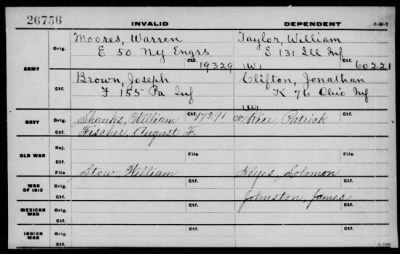 26756 INVALID DEPENDENT
Moores, Warren Taylor, William
Orig. E 50 NY Engrs G 131 Ill Inf
Ctf. 19329 (W) 60221
ARMY
Brown, Joseph Clifton, Jonathan
Orig. F 155 Pa Inf K 76 Ohio Inf
Ctf. (W)
NAVY Orig. William Price Patrick
Ctf. Fischer, August F.
OLD WAR Rej.
Ctf. File File
WAR OF 1812 Orig. Stow William Keyes, Solomon
Ctf.
MEXICAN WAR Orig. Johnston, James
Ctf.
INDIAN WAR Orig.
Ctf.